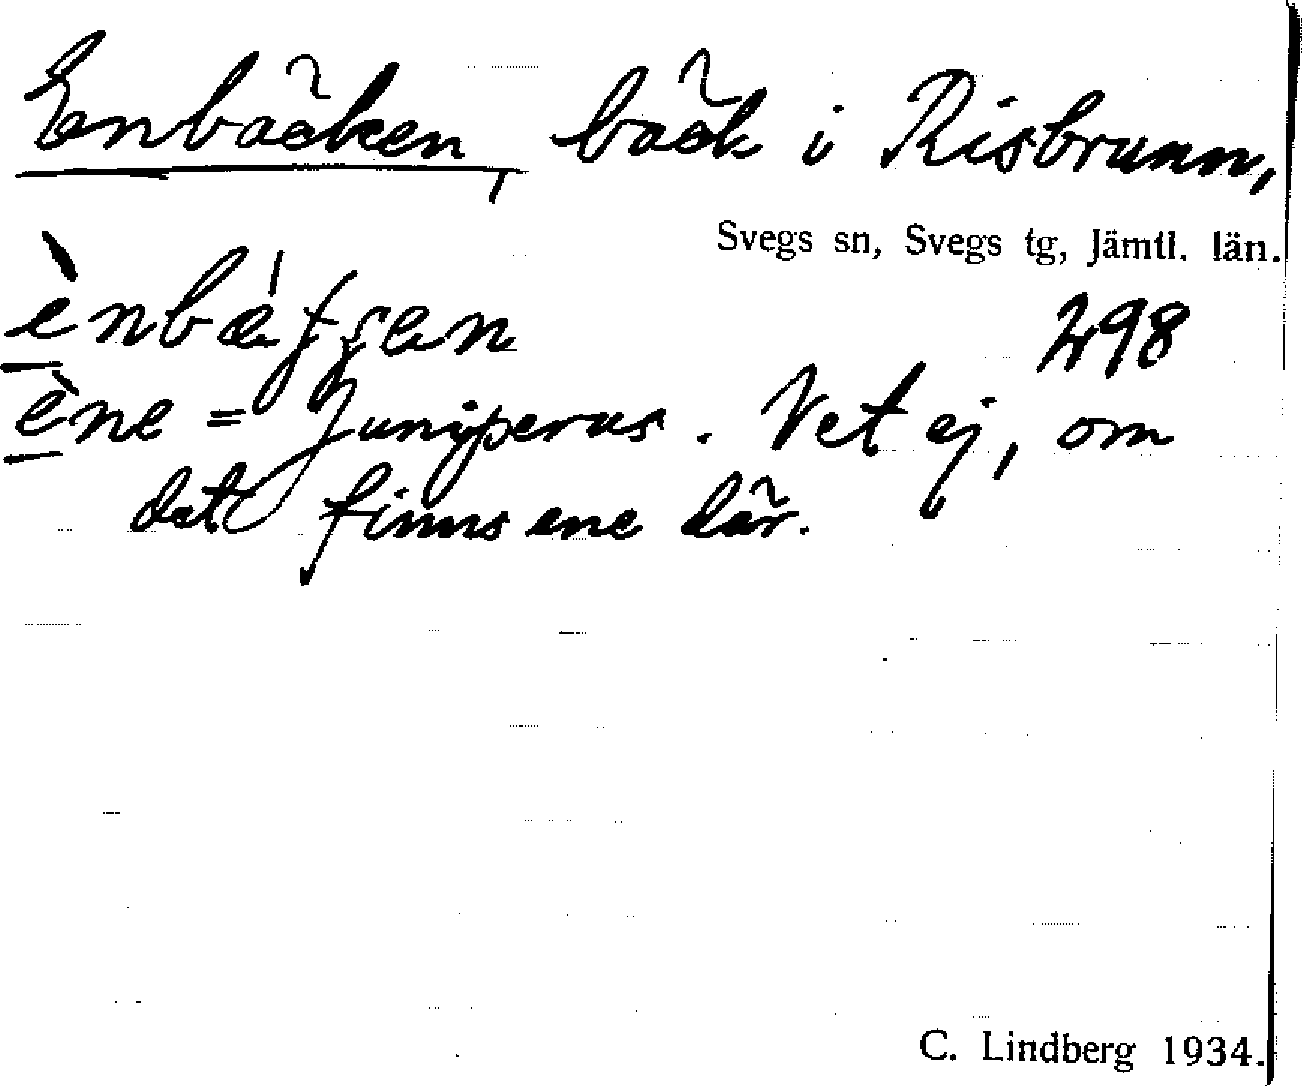 Enbäcken, bäck i Risbrunn,
Svegs sn, Svegs tg, Jämtl. län.
298
ène = Juniperus. Vet ej, om
det finns ene där.
C. Lindberg 1934.